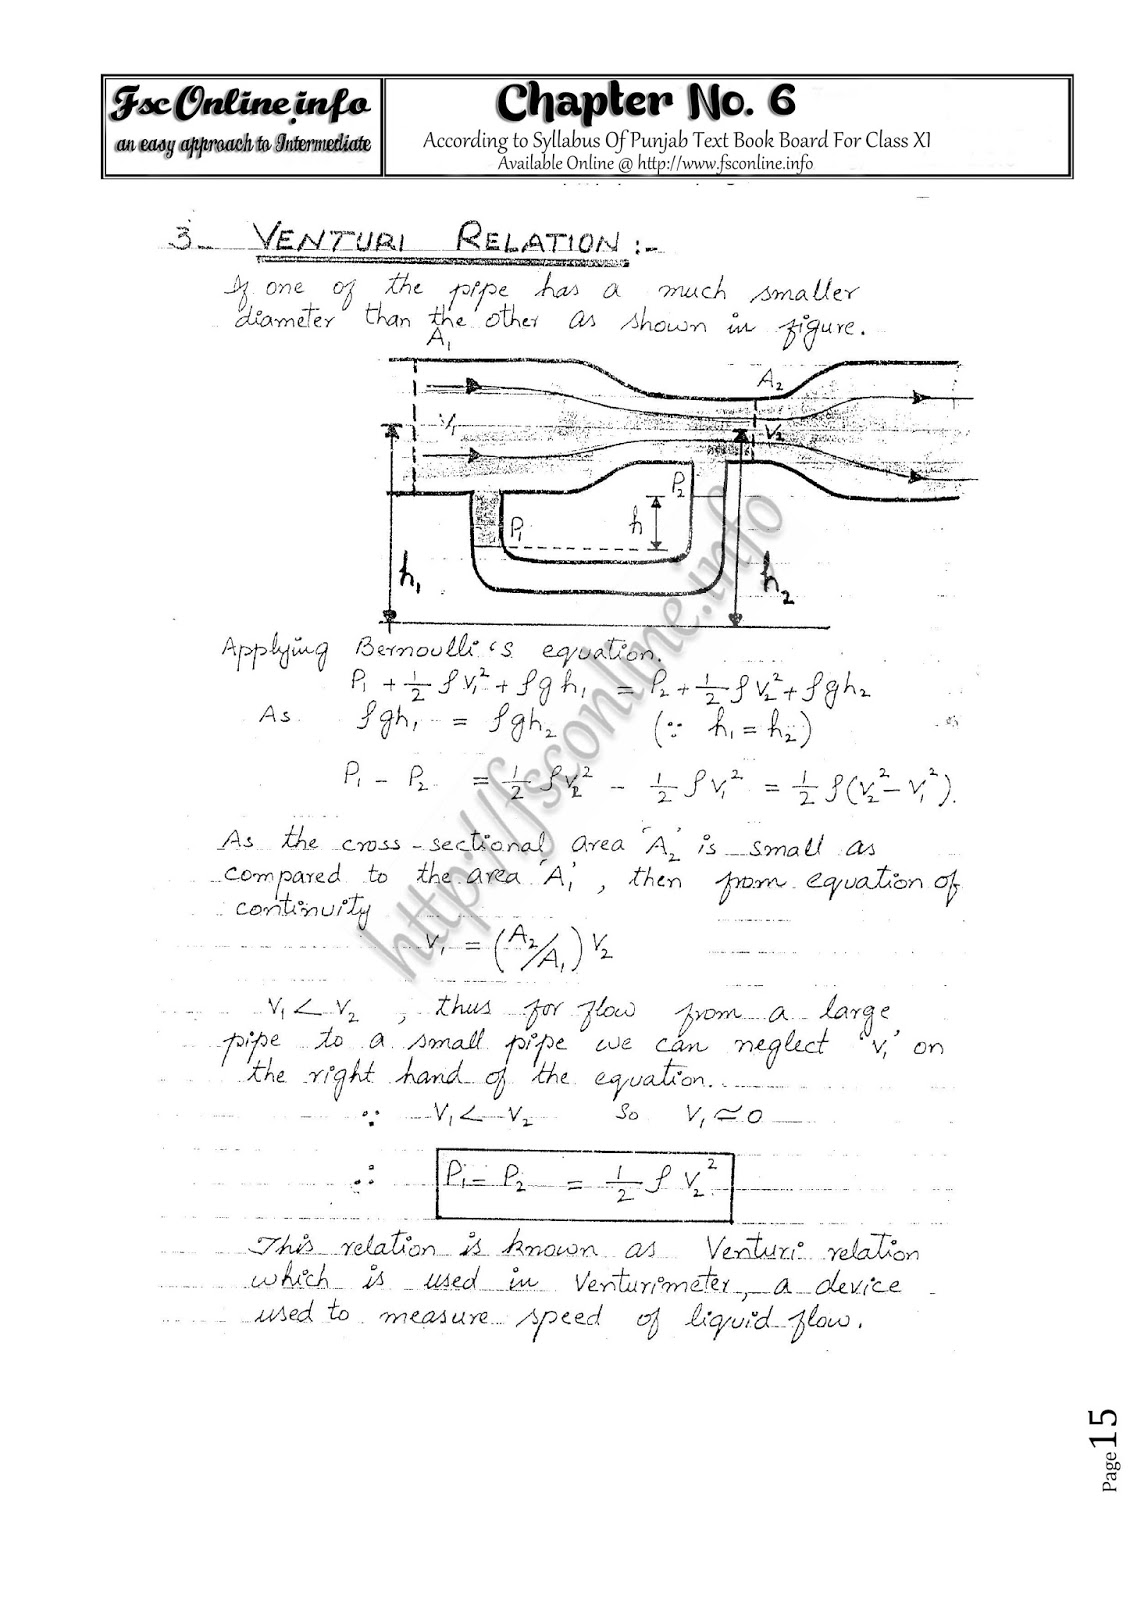 Fsc Online.info
an easy approach to Intermediate
Chapter No. 6
According to Syllabus Of Punjab Text Book Board For Class XI
Available Online @ http://www.fsconline.info
3- VENTURI RELATION :-
If one of the pipe has a much smaller
diameter than the other as shown in figure.
A₁
A₂
V₁
V₂
P₂
P₁
h
h₁
h₂
Applying Bernoulli's equation.
P₁ + 1/2 ρv₁² + ρgh₁ = P₂ + 1/2 ρv₂² + ρgh₂
As ρgh₁ = ρgh₂ (∵ h₁ = h₂)
P₁ - P₂ = 1/2 ρv₂² - 1/2 ρv₁² = 1/2 ρ(v₂² - v₁²).
As the cross-sectional area 'A₂' is small as
compared to the area 'A₁', then from equation of
continuity
V₁ = (A₂/A₁) V₂
V₁ < V₂, thus for flow from a large
pipe to a small pipe we can neglect 'V₁' on
the right hand of the equation.
∵ V₁ < V₂ So V₁ ≃ 0
∴ P₁ - P₂ = 1/2 ρ V₂²
This relation is known as Venturi relation
which is used in Venturimeter, a device
used to measure speed of liquid flow.
http://fsconline.info
Page 15